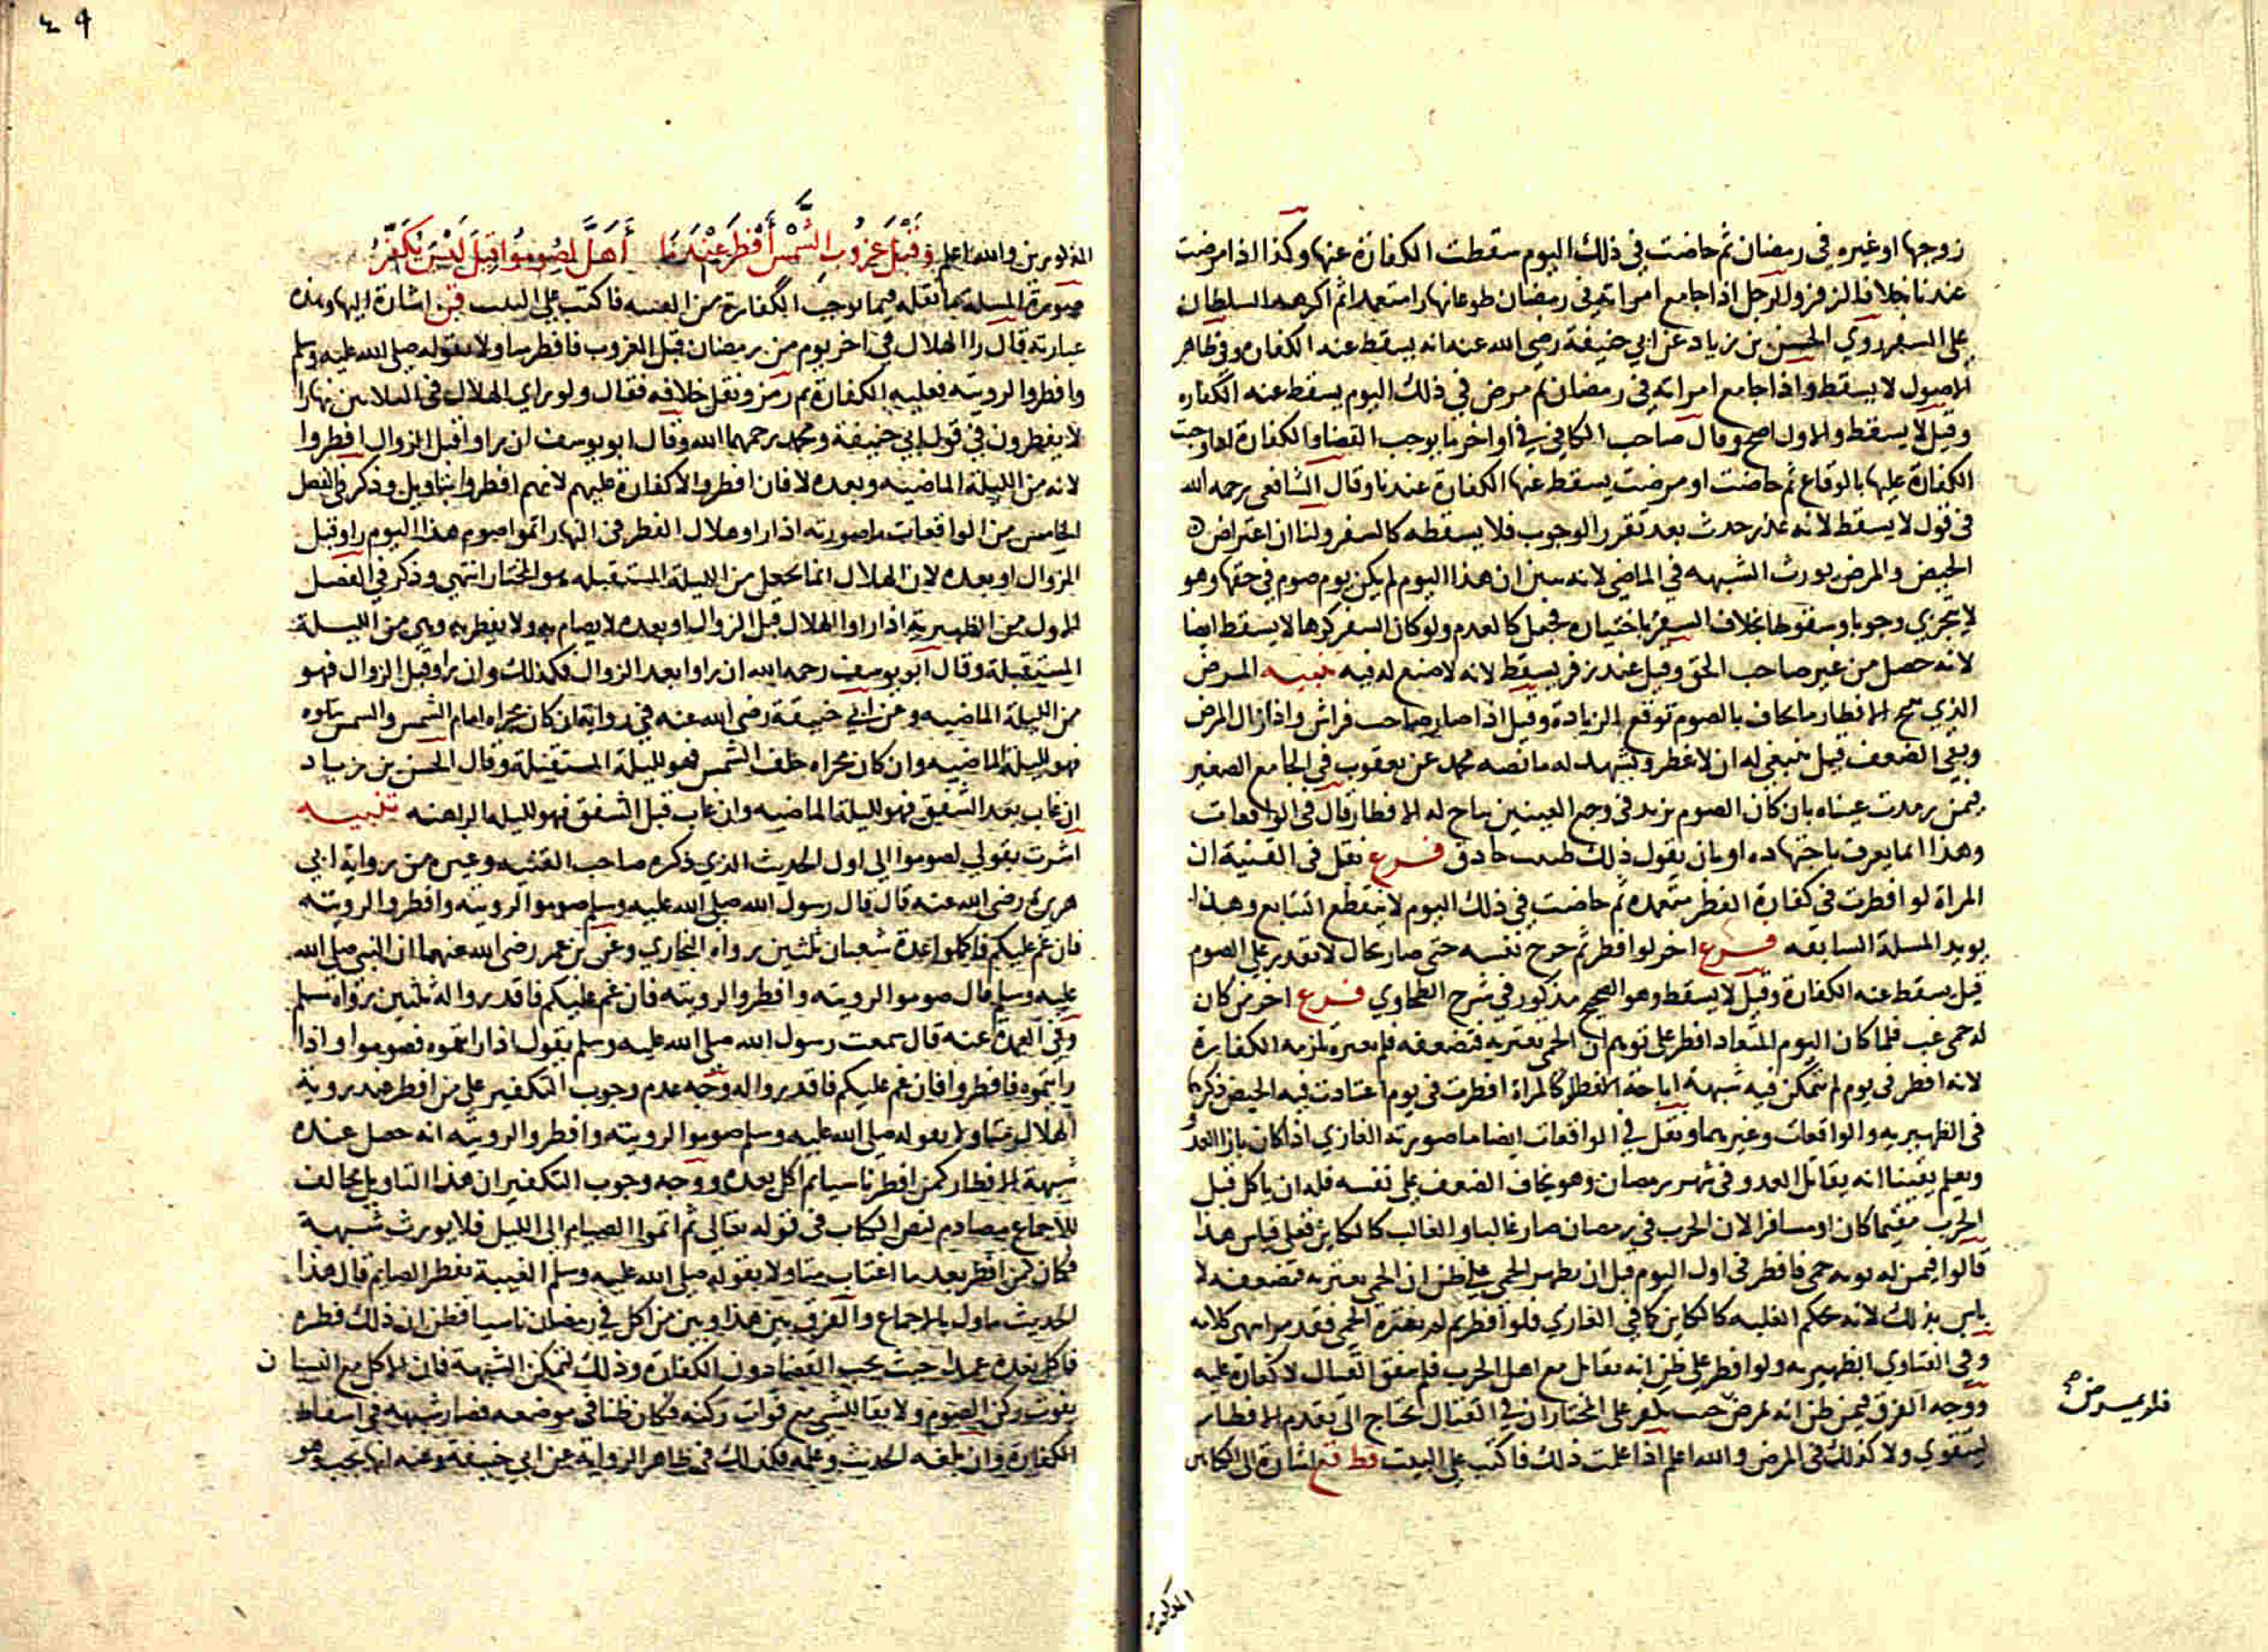 زوجها او غيره في رمضان ثم حاضت في ذلك اليوم سقطت الكفارة عنها وكذا اذا مرضت
عندنا خلافا لزفر والرجل اذا جامع امراته في رمضان طوعا نهارا متعمدا ثم اكرهه السلطان
على السفر روي الحسن بن زياد عن ابي حنيفة رضي الله عنه انه يسقط عنه الكفاره وفي ظاهر
الاصول لا يسقط واذا جامع امراته في رمضان ثم مرض في ذلك اليوم يسقط عنه الكفاره
وقيل لا يسقط والاول اصح وقال صاحب الكافي في اواخر ما يوجب القضا والكفارة اذا وجبت
الكفارة عليها بالوقاع ثم حاضت او مرضت يسقط عنها الكفارة عندنا وقال الشافعي رحمه الله
في قول لا يسقط لانه عذر حدث بعد تقرر الوجوب فلا يسقطه كالسفر ولنا ان اعتراض
الحيض والمرض يورث الشبهه في الماضي لانه تبين ان هذا اليوم لم يكن يوم صوم في حقها وهو
لا يتجزي وجوبا وسقوطا بخلاف السفر باختياره فجعل كالعدم ولو كان السفر كرها لا يسقط ايضا
لانه حصل من غير صاحب الحق وقيل عند زفر يسقط لانه لا صنع له فيه تنبيه المرض
الذي يبيح الافطار ما يخاف بالصوم توقع الزيادة وقيل اذا صار صاحب فراش واذا زال المرض
وبقي الضعف قيل ينبغي له ان لا يفطر ويشهد له ما نصه محمد عن يعقوب في الجامع الصغير
فيمن رمدت عيناه بان كان الصوم يزيد في وجع العينين يباح له الافطار قال في الواقعات
وهذا انما يعرف باجتهاده او بان يقول ذلك طبيب حاذق فرع نقل في القنية ان
المراة لو افطرت في كفارة الفطر متعمده ثم حاضت في ذلك اليوم لا ينقطع التتابع وهذا
يويد المسلة السابقه فرع اخر لو افطر ثم جرح نفسه حتى صار بحال لا يقدر على الصوم
قيل يسقط عنه الكفارة وقيل لا يسقط وهو الصحيح مذكور في شرح الطحاوي فرع اخر من كان
له حمى غب فلما كان اليوم المعتاد افطر على توهم ان الحمى تعتريه فتضعفه فلم تعتره تلزمه الكفارة
لانه افطر في يوم لم تتمكن فيه شبهة اباحة الفطر كالمراة افطرت في يوم اعتادت فيه الحيض ذكره
في الظهيريه والواقعات وغيرهما ونقل في الواقعات ايضا ما صورته الغازي اذا كان بازا العدو
ويعلم يقينا انه يقاتل العدو في شهر رمضان وهو يخاف الضعف على نفسه فله ان ياكل قبل
الحرب مقيما كان او مسافرا لان الحرب في رمضان صار غالبا والغالب كالكاين فعلى قياس هذا
قالوا فيمن له نوبه حمى فافطر في اول اليوم قبل ان تظهر الحمى على ظن ان الحمى تعتريه فتضعفه لا
باس بذلك لانه بحكم الغلبه كالكاين كما في الغازي فلو افطر ثم لم تعتره الحمى فقد مر انتهى كلامه
وفي الفتاوي الظهيريه ولو افطر على ظن انه يقاتل مع اهل الحرب فلم يتفق القتال لا كفارة عليه
ووجه الفرق فيمن ظن انه يمرض حيث يكفر على المختار ان في القتال يحتاج الى تقدم الافطار
ليتقوي ولا كذلك في المرض والله اعلم اذا علمت ذلك فاكتب على البيت قط قع اشارة الى الكتابين
فلم يمرض صح
المذكورين
٤٩
المذكورين والله اعلم وَقَبْلَ غروب الشَّمْس أفْطَرَ عِنْدَمَا أَهَلَّ لصُومُوا قِيلَ لَيْسَ يُكَفِّرُ
صورة المسلة ما نقله فيما يوجب الكفارة من القنيه فاكتب على البيت قن اشارة اليها وهذه
عبارته قال راا الهلال في اخر يوم من رمضان قبل الغروب فافطر متاولا بقوله صلى الله عليه وسلم
وافطروا لرويته فعليه الكفارة ثم رمز ونقل خلافه فقال ولو راي الهلال في الثلاثين نهارا
لا يفطرون في قول ابي حنيفة ومحمد رحمهما الله وقال ابو يوسف ان راوا قبل الزوال افطروا
لانه من الليلة الماضيه وبعده لا فان افطروا لا كفارة عليهم لانهم افطروا بتاويل وذكر في الفصل
الخامس من الواقعات ما صورته اذا راوا هلال الفطر في النهار اتموا صوم هذا اليوم راو قبل
الزوال او بعده لان الهلال انما يجعل من الليلة المستقبله هو المختار انتهى وذكر في الفصل
الاول من الظهيريه اذا راوا الهلال قبل الزوال او بعده لا يصام به ولا يفطر به وهي من الليلة
المستقبلة وقال ابو يوسف رحمه الله ان راوا بعد الزوال فكذلك وان راو قبل الزوال فهو
من الليلة الماضيه وعن ابي حنيفة رضي الله عنه في رواية ان كان مجراه امام الشمس والشمس تتلوه
فهو لليلة الماضيه وان كان مجراه خلف الشمس فهو لليلة المستقبلة وقال الحسن بن زياد
ان غاب بعد الشفق فهو لليلة الماضيه وان غاب قبل الشفق فهو لليله الراهنه تنبيه
اشرت بقولي لصوموا الى اول الحديث الذي ذكره صاحب القنيه وغيره من رواية ابي
هريرة رضي الله عنه قال قال رسول الله صلى الله عليه وسلم صوموا لرويته وافطروا لرويته
فان غم عليكم فاكملوا عدة شعبان ثلثين رواه البخاري وعن بن عمر رضي الله عنهما ان النبي صلى الله
عليه وسلم قال صوموا لرويته وافطروا لرويته فان غم عليكم فاقدروا له ثلثين رواه مسلم
وفي العمدة عنه قال سمعت رسول الله صلى الله عليه وسلم يقول اذا رايتموه فصوموا واذا
رايتموه فافطروا فان غم عليكم فاقدروا له وجه عدم وجوب التكفير على من افطر عند روية
الهلال متاولا بقوله صلى الله عليه وسلم صوموا لرويته وافطروا لرويته انه حصل عنده
شبهة الافطار كمن افطر ناسيا ثم اكل بعده ووجه وجوب التكفير ان هذا التاويل مخالف
للاجماع مصادم لنص الكتاب في قوله تعالى ثم اتموا الصيام الى الليل فلا يورث شبهة
فكان كمن افطر بعد ما اغتاب متاولا بقوله صلى الله عليه وسلم الغيبة تفطر الصايم قال هذا
الحديث ماول بالاجماع والفرق بين هذا وبين من اكل في رمضان ناسيا فظن ان ذلك فطره
فاكل بعده عمدا حيث يجب القضا دون الكفارة وذلك لتمكن الشبهة فان الاكل مع النسيان
يفوت ركن الصوم ولا بقا للشي مع فوات ركنه فكان ظنا في موضعه فصار شبهه في اسقاط
الكفارة وان بلغه الحديث وعلمه فكذلك في ظاهر الرواية عن ابي حنيفة وعنه انها تجب وهو